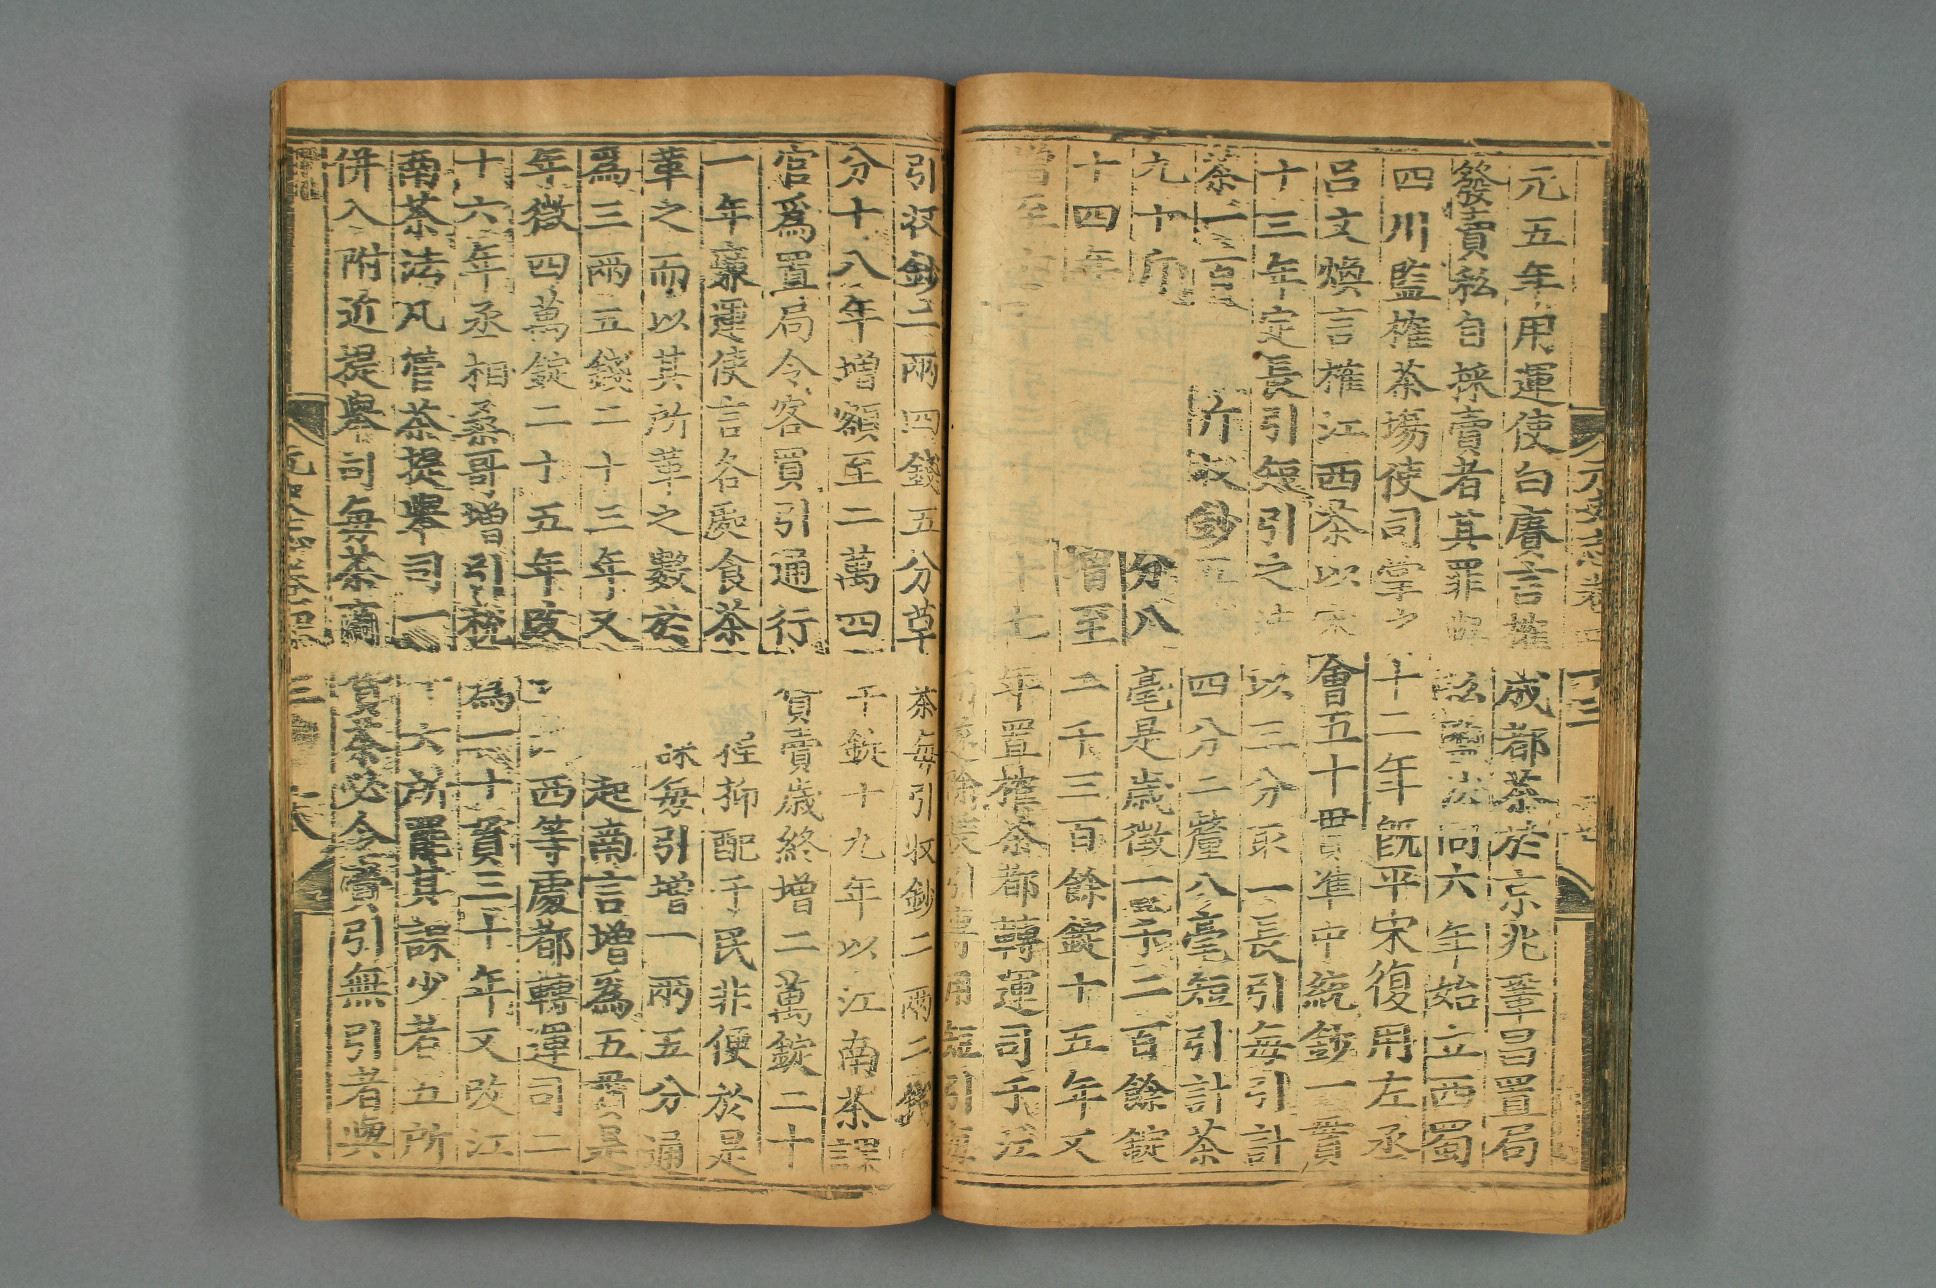 元五年用運使白賡言榷成都茶於京兆鞏昌置局
發賣私自採賣者其罪與私鹽法同六年始立西蜀
四川監榷茶場使司掌之十二年旣平宋復用左丞
呂文煥言榷江西茶以宋會五十貫准中統鈔一貫
十三年定長引短引之法以三分取一長引每引計
茶一百 斤收鈔五 四分二釐八毫短引計茶
九十斤 分八毫是歲徵一千二百餘錠
十四年 增至二千三百餘錠十五年又
年置榷茶都轉運司于江
用 引
引收鈔二兩四錢五分草茶每引收鈔二兩二錢
分十八年增額至二萬四千錠十九年以江南茶課
官爲置局令客買引通行貨賣歲終增二萬錠二十
一年廉運使言各處食茶 抑配于民非便於是
革之而以其所革之數於 每引增一兩五分通
爲三兩五錢二十三年又 起 言增爲五貫是
年徵四萬錠二十五年改 西等處都轉運司二
十六年丞相桑哥增引稅爲一十貫三十年又改江
南茶法凡管茶提舉司一十六所罷其課少者五所
併入附近提舉司每茶商貨茶必令賫引無引者與